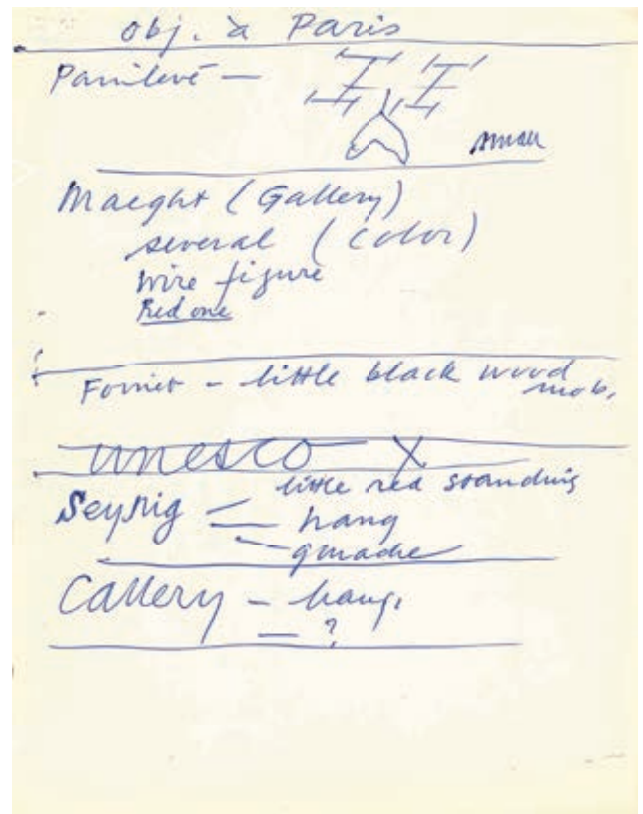 obj. à Paris
Painlevé —
small
Maeght (Gallery)
several (color)
wire figure
Red one
— little black wood
mob.
unesco X
Seyrig — little red standing
— hang
— gouache
Callery — hang.
— ?